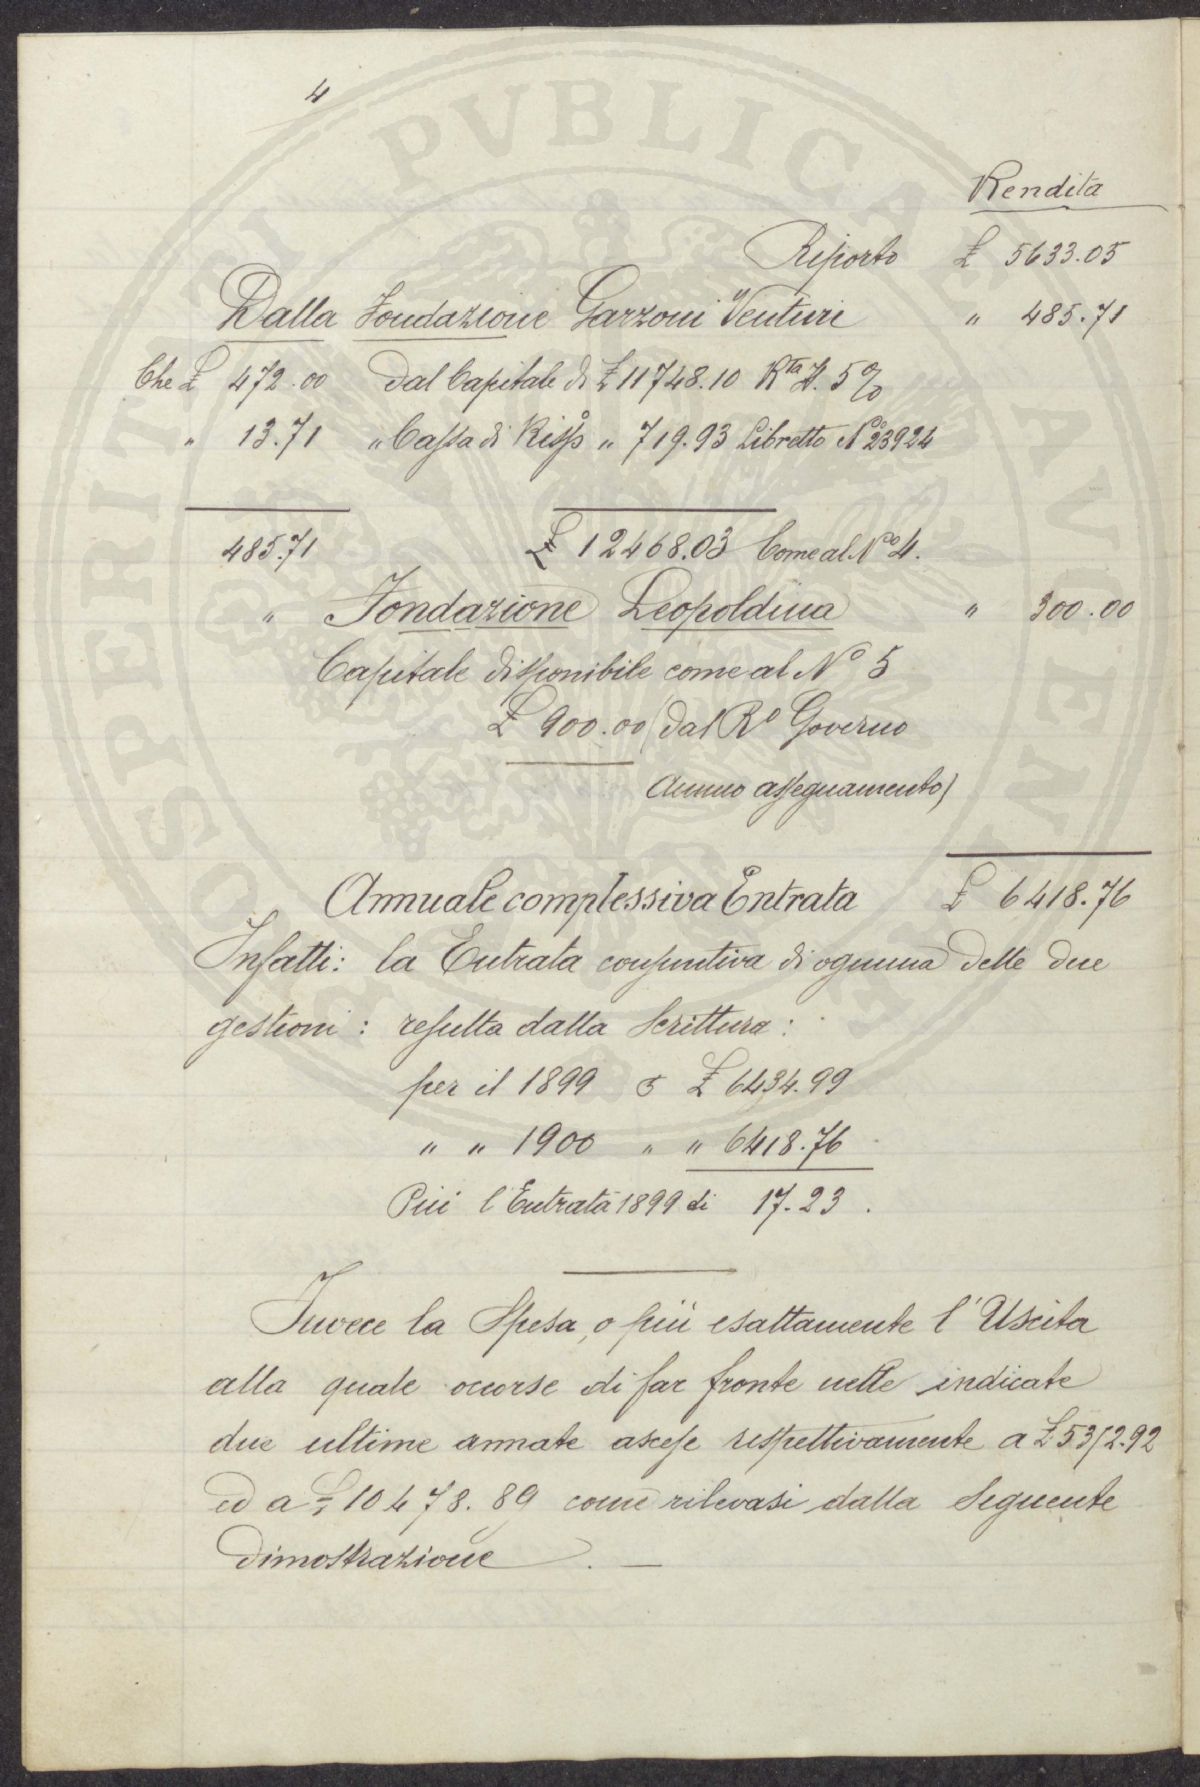 4
Rendita
Riporto £ 5633.05
Dalla Fondazione Garzoni Venturi " 485.71
Che £ 472.00 dal Capitale di £ 11748.10 Rta It. 5%
" 13.71 " Cassa di Rispo " 719.93 Libretto No 23924
485.71 £ 12468.03 Come al No 4.
" Fondazione Leopoldina " 300.00
Capitale disponibile come al No 5
£ 900.00 (dal Ro Governo
annuo assegnamento)
Annuale complessiva Entrata £ 6418.76
Infatti: la Entrata consuntiva di ognuna delle due
gestioni: resulta dalla Scrittura:
per il 1899 £ 6434.99
" " 1900 " " 6418.76
Più l'Entrata 1899 di 17.23.
Invece la Spesa, o più esattamente l'Uscita
alla quale occorse di far fronte nelle indicate
due ultime annate ascese respettivamente a £ 5312.92
ed a £ 10478.89 come rilevasi dalla seguente
dimostrazione. —
PVBLICAE AVGENDAE PROSPERITATI